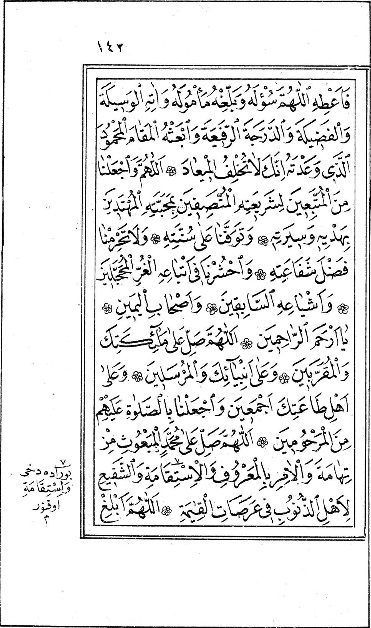 ١٤٢
فَاَعْطِهِ اَللّٰهُمَّ سُؤْلَهُ وَبَلِّغْهُ مَأْمُولَهُ وَاٰتِهِ الْوَسِيلَةَ
وَالْفَضِيلَةَ وَالدَّرَجَةَ الرَّفِيعَةَ وَابْعَثْهُ الْمَقَامَ الْمَحْمُودَ
الَّذِى وَعَدْتَهُ اِنَّكَ لَا تُخْلِفُ الْمِيعَادَ ۞ اَللّٰهُمَّ وَاجْعَلْنَا
مِنَ الْمُتَّبِعِينَ لِشَرِيعَتِهِ الْمُتَّصِفِينَ بِمَحَبَّتِهِ الْمُهْتَدِينَ
بِهَدْيِهِ وَسِيرَتِهِ ۞ وَتَوَفَّنَا عَلٰى سُنَّتِهِ ۞ وَلَا تَحْرِمْنَا
فَضْلَ شَفَاعَتِهِ ۞ وَاحْشُرْنَا فِى اَتْبَاعِهِ الْغُرِّ الْمُحَجَّلِينَ
۞ وَاَشْيَاعِهِ السَّابِقِينَ ۞ وَاَصْحَابِ الْيَمِينِ ۞
يَا اَرْحَمَ الرَّاحِمِينَ ۞ اَللّٰهُمَّ صَلِّ عَلٰى مَلٰۤئِكَتِكَ
وَالْمُقَرَّبِينَ ۞ وَعَلٰى اَنْبِيَاۤئِكَ وَالْمُرْسَلِينَ ۞ وَعَلٰى
اَهْلِ طَاعَتِكَ اَجْمَعِينَ وَاجْعَلْنَا بِالصَّلٰوةِ عَلَيْهِمْ
مِنَ الْمَرْحُومِينَ ۞ اَللّٰهُمَّ صَلِّ عَلٰى مُحَمَّدٍ الْمَبْعُوثِ مِنْ
تِهَامَةَ وَالْاٰمِرِ بِالْمَعْرُوفِ وَالْاِسْتِقَامَةِ وَالشَّفِيعِ
لِاَهْلِ الذُّنُوبِ فِى عَرَصَاتِ الْقِيٰمَةِ ۞ اَللّٰهُمَّ اَبْلِغْ
٧
بورادہ دخى
وَاسْتِقَامَةِ
اوقنور